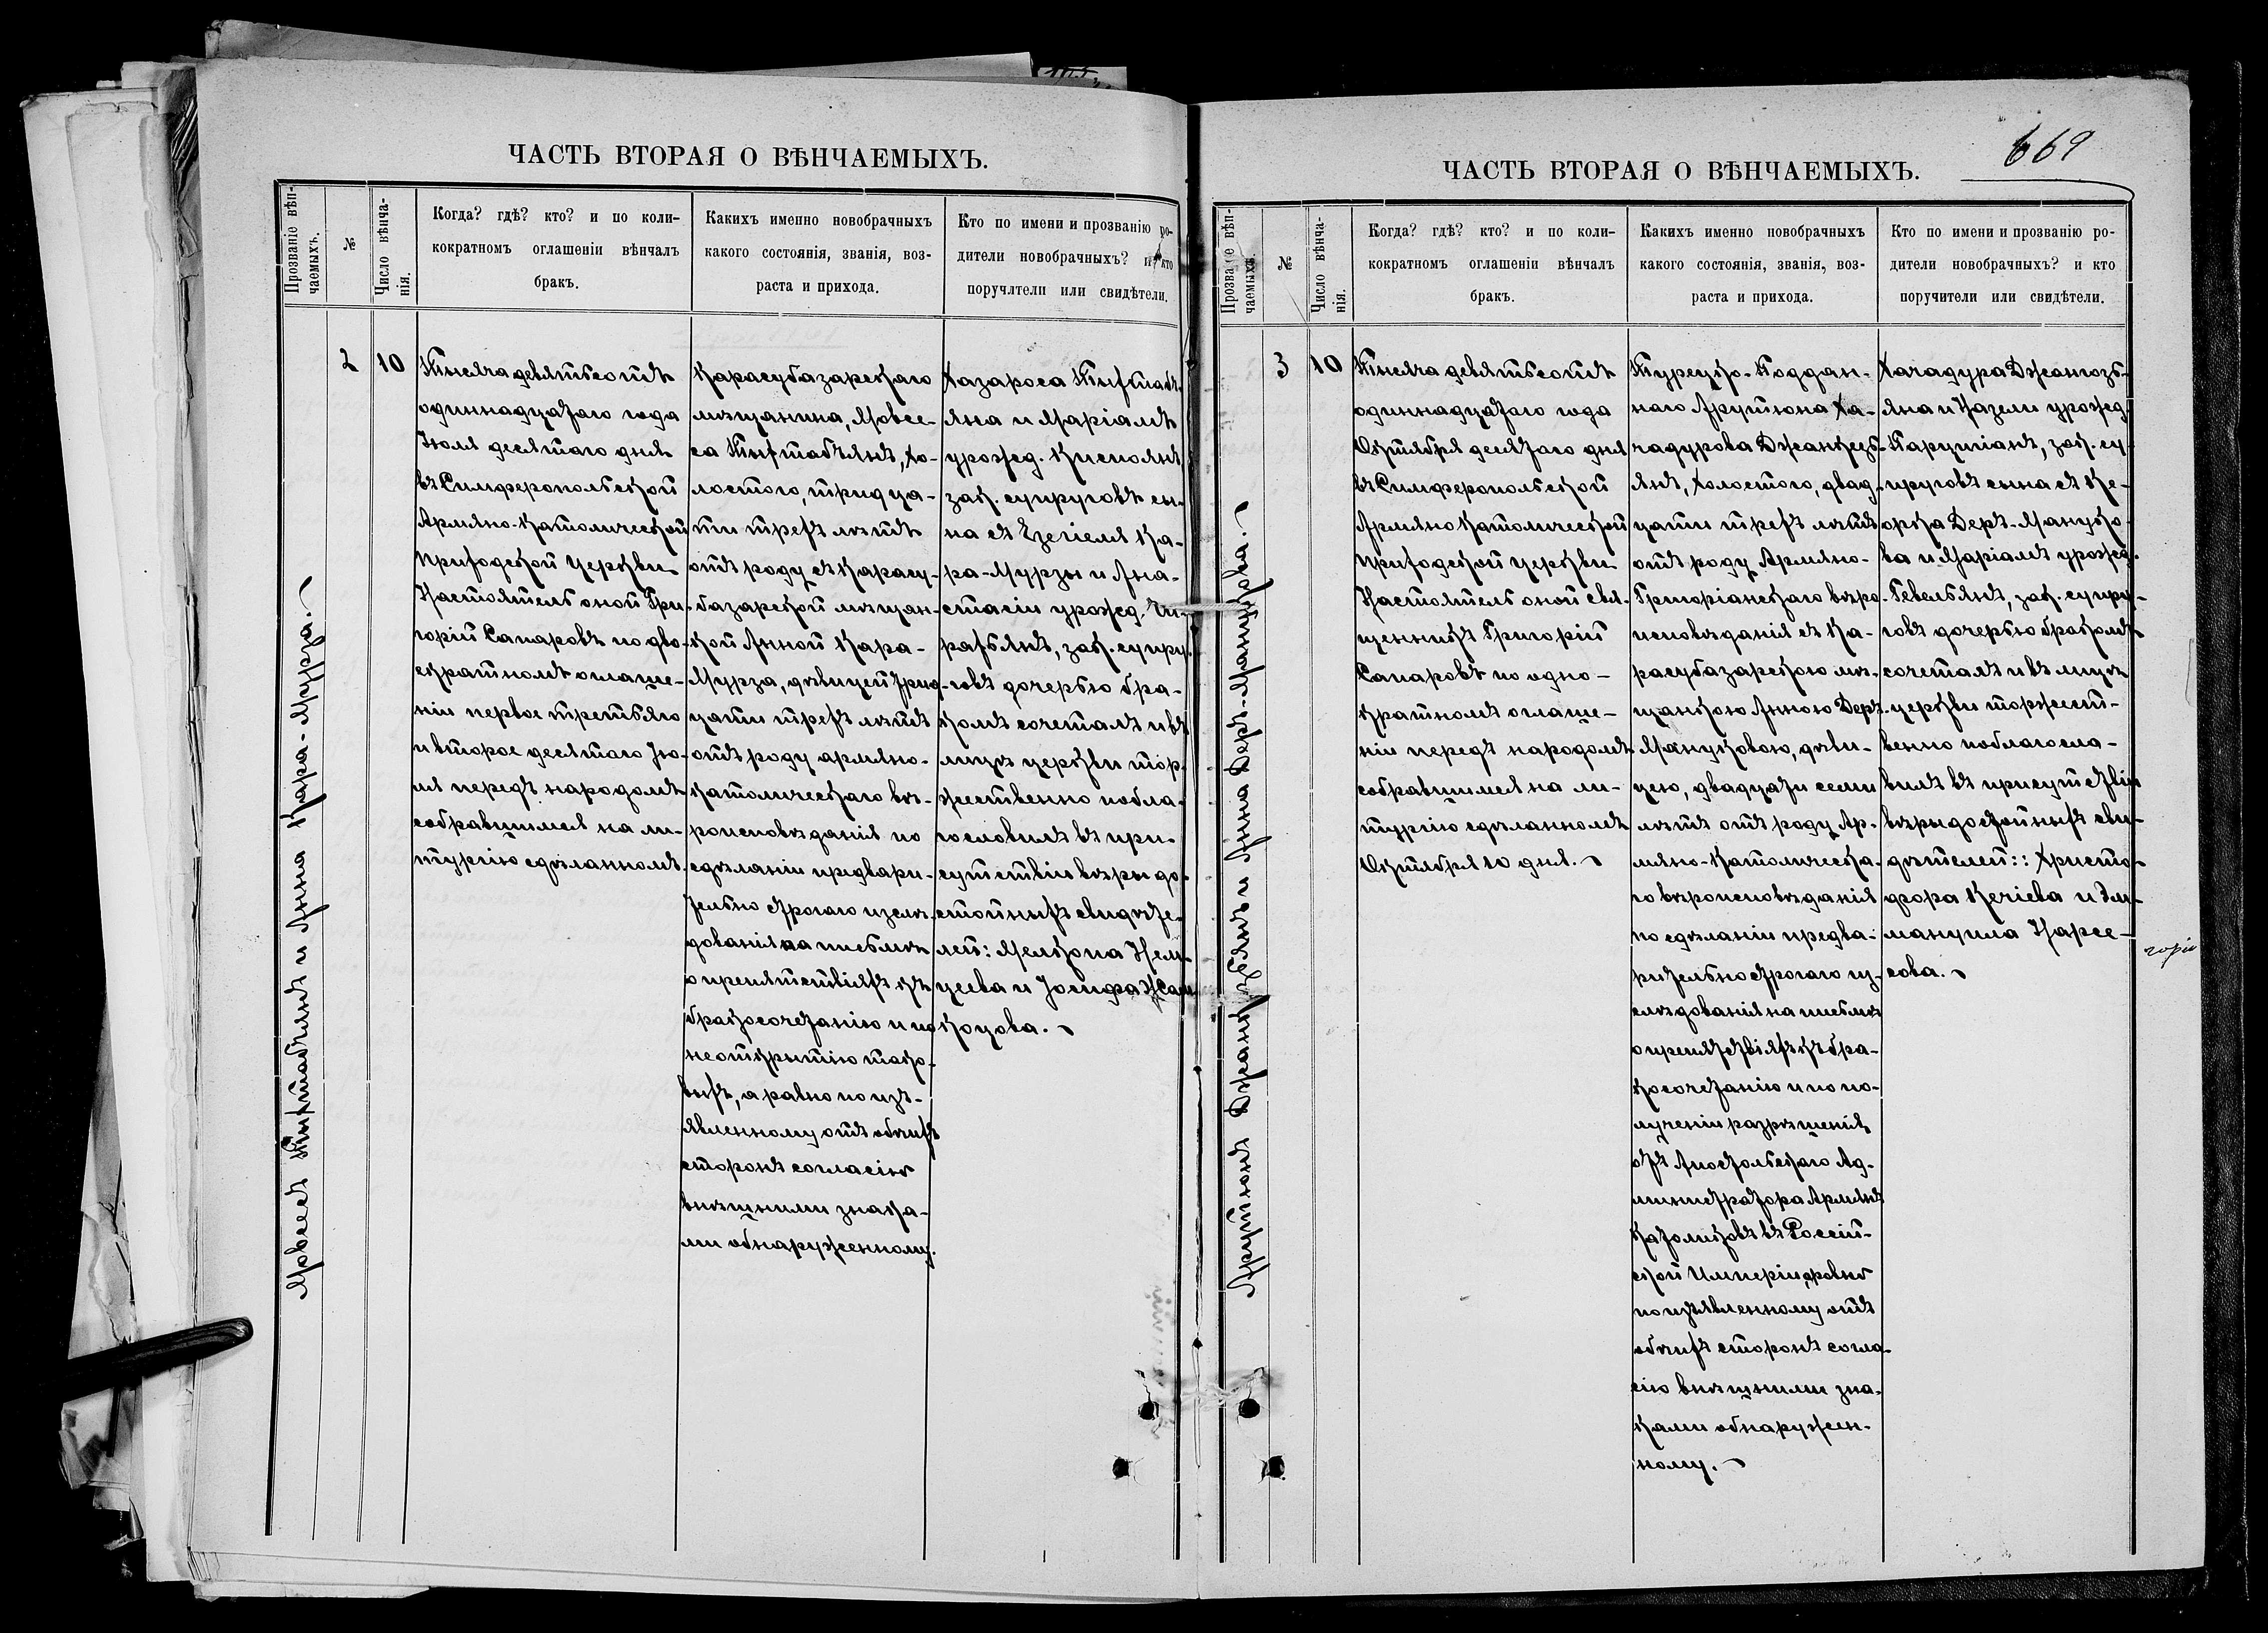 ЧАСТЬ ВТОРАЯ О ВѢНЧАЕМЫХЪ.
Прозваніе вѣн-
чаемыхъ.
№
Число вѣнча-
нія.
Когда? гдѣ? кто? и по коли-
кократномъ оглашеніи вѣнчалъ
бракъ.
Какихъ именно новобрачныхъ
какого состоянія, званія, воз-
раста и прихода.
Кто по имени и прозванію ро-
дители новобрачныхъ? и кто
поручители или свидѣтели.
и Анна Кара-Мурза.
2
10
Тысяча девятьсотъ
одиннадцатаго года
Іюля десятаго дня
въ Симферопольской
Армяно-Католической
Приходской Церкви
Настоятель оной Гри-
горій Сапаровъ по дво-
екратномъ оглаше-
ніи первое третьяго
и второе десятаго Ію-
ля передъ народомъ
собравшимся на ли-
тургію сдѣланномъ.
Карасубазарскаго
мѣщанина, Мовсе-
са хо-
лостого, тридца-
ти трехъ лѣтъ
отъ роду съ Карасу-
базарской мѣщан-
кой Анной Кара-
Мурза, дѣвицей трид-
цати трехъ лѣтъ
отъ роду армяно-
католическаго вѣ-
роисповѣданія по
сдѣланіи предвари-
тельно строгаго изслѣ-
дованія на письмѣ
о препятствіяхъ къ
бракосочетанію и по
неоткрытію тако-
выхъ, а равно по изъ-
явленному отъ обѣихъ
сторонъ согласію
внѣшними знака-
ми обнаруженному.
Хазароса
яна и Маріамъ
урожд.
зак. супруговъ сы-
на съ Езекіеля Ка-
ра-Мурзы и Ана-
стасіи урожд.
зак. супру-
говъ дочерью бра-
комъ сочеталъ и въ
лицѣ церкви тор-
жественно побла-
гословилъ въ при-
сутствіи вѣры до-
стойныхъ свидѣте-
лей: Мелкона
и Іосифа
ЧАСТЬ ВТОРАЯ О ВѢНЧАЕМЫХЪ.
669
Прозваніе вѣн-
чаемыхъ.
№
Число вѣнча-
нія.
Когда? гдѣ? кто? и по коли-
кократномъ оглашеніи вѣнчалъ
бракъ.
Какихъ именно новобрачныхъ
какого состоянія, званія, воз-
раста и прихода.
Кто по имени и прозванію ро-
дители новобрачныхъ? и кто
поручители или свидѣтели.
Арутюнъ и Анна Деръ-Манукова.
3
10
Тысяча девятьсотъ
одиннадцатаго года
Октября десятаго дня
въ Симферопольской
Армяно Католической
Приходской церкви
Настоятель оной свя-
щенникъ Григорій
Сапаровъ по одно-
кратномъ оглаше-
ніи передъ народомъ
собравшимся на ли-
тургію сдѣланномъ
Октября 10 дня.
Турецко-Поддан-
наго Арутюна Ха-
чадурова
янъ, холостого, двад-
цати трехъ лѣтъ
отъ роду Армяно-
Григоріанскаго вѣро-
исповѣданія съ Ка-
расубазарскою мѣ-
щанкою Анною Деръ-
Мануковою, дѣви-
цею, двадцати семи
лѣтъ отъ роду Ар-
мяно-Католическа-
го вѣроисповѣданія
по сдѣланіи предва-
рительно строгаго из-
слѣдованія на письмѣ
о препятствіяхъ къ бра-
косочетанію и по по-
лученіи разрѣшенія
отъ Апостольскаго Ад-
министратора Армянъ
Католиковъ въ Россій-
ской Имперіи, а равно
по изъявленному отъ
обѣихъ сторонъ согла-
сію внѣшними зна-
ками обнаружен-
ному.
Хачадура
яна и урожд.
зак. су-
пруговъ сына съ Ке-
ворка Деръ-Мануко-
ва и Маріамъ урожд.
зак. супру-
говъ дочерью бракомъ
сочеталъ и въ лицѣ
церкви торжест-
венно поблагосло-
вилъ въ присутствіи
вѣры достойныхъ сви-
дѣтелей: Христо-
фора Кечіева и Эм-
мануила Нарсе-
сова.